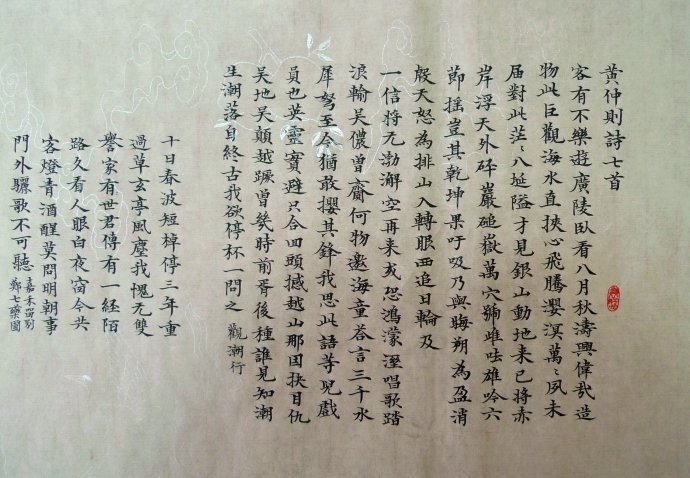 黃仲則詩七首
客有不樂遊廣陵臥看八月秋濤興偉哉造
物此巨觀海水直挾心飛騰瀴溟萬〻夙未
届對此茫〻八埏隘才見銀山動地来已將赤
岸浮天外砰巖磓嶽萬穴號雌呿雄吟六
節搖豈其乾坤果吁吸乃與晦朔為盈消
殷天怒為排山入轉眼西追日輪及
一信将无渤澥空再来或恐鴻蒙溼唱歌踏
浪輸吴儂曾齎何物邀海童答言三千水
犀弩至今猶敢攖其鋒我思此語等兒戲
員也英靈實避只合回頭撼越山那因抉目仇
吴地吴顛越蹶曾幾時前胥後種誰見知潮
生潮落自終古我欲停杯一問之 觀潮行
十日春波短棹停三年重
過草玄亭風塵我愧无雙
譽家有世君傳有一經陌
路久看人眼白夜窗今共
客燈青酒醒莫問明朝事
門外驪歌不可聽 嘉禾留別
鄭七藥圃